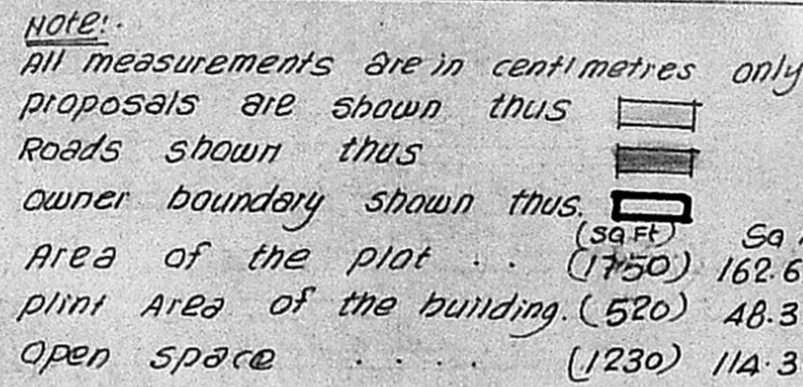 Note:-
All measurements are in centimetres only
proposals are shown thus
Roads shown thus
owner boundary shown thus.
(Sq Ft) Sq.
Area of the plot . . (1750) 162.6
plint Area of the building. (520) 48.3
Open space . . . . (1230) 114.3